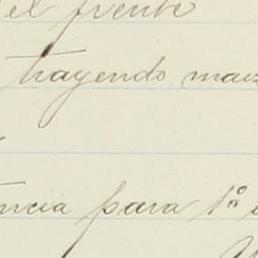 el frente
trayendo maiz
ncia para 1º